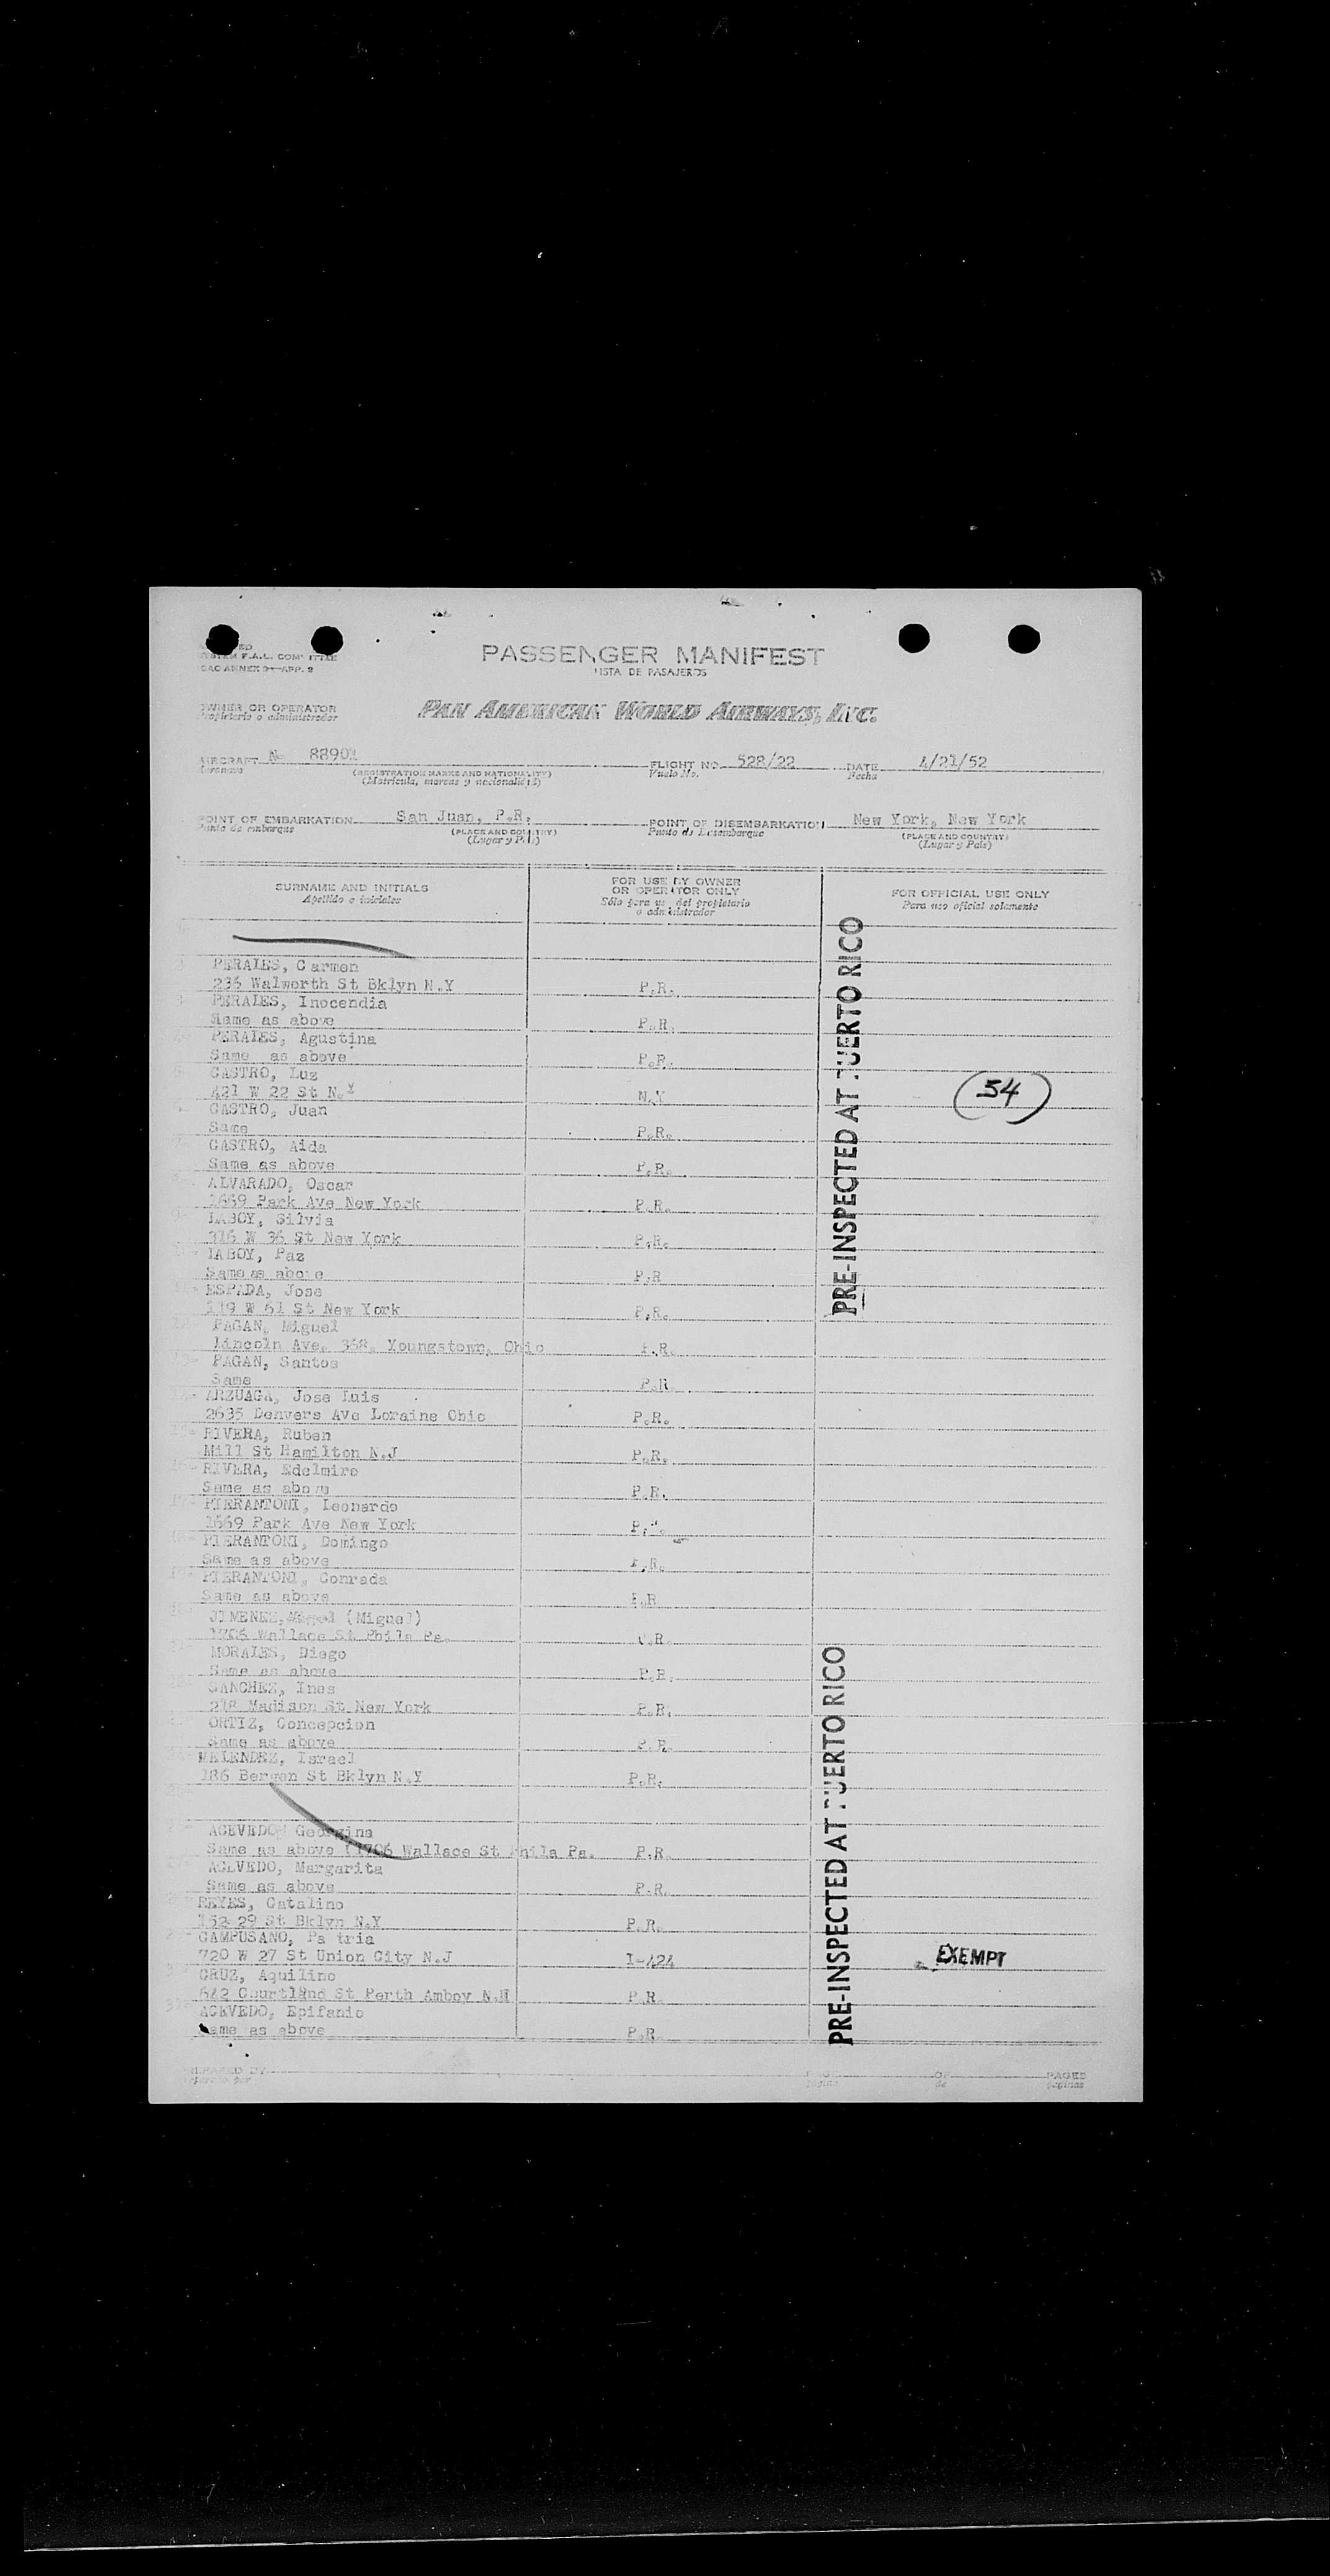 PASSENGER MANIFEST
LISTA DE PASAJEROS
F.A.L.
ANNEX 9—APP. 2
OWNER OR OPERATOR
Propietario o administrador
PAN AMERICAN WORLD AIRWAYS, INC.
AIRCRAFT N- 88901 FLIGHT NO. 528/22 DATE 4/21/52
Aeronave (REGISTRATION MARKS AND NATIONALITY) Vuelo No. Fecha
(Matricula, marcas y nacionalidad)
POINT OF EMBARKATION San Juan, P.R. POINT OF DISEMBARKATION New York, New York
Punto de embarque (PLACE AND COUNTRY) Punto de Desembarque (PLACE AND COUNTRY)
(Lugar y País) (Lugar y País)
SURNAME AND INITIALS
Apellido e iniciales
FOR USE BY OWNER
OR OPERATOR ONLY
Sólo para uso del propietario
o administrador
FOR OFFICIAL USE ONLY
Para uso oficial solamente
PERALES, Carmen
236 Walworth St Bklyn N.Y P.R.
PERALES, Inocendia
Same as above P.R.
PERALES, Agustina
Same as above P.R.
CASTRO, Luz
421 W 22 St N.Y N.Y
CASTRO, Juan
Same P.R.
CASTRO, Aida
Same as above P.R.
ALVARADO, Oscar
1669 Park Ave New York P.R.
LABOY, Silvia
316 W 36 St New York P.R.
LABOY, Paz
Same as above P.R
ESPADA, Jose
119 W 61 St New York P.R.
PAGAN, Miguel
Lincoln Ave. 368, Youngstown, Ohio P.R.
PAGAN, Santos
Same P.R.
ARZUAGA, Jose Luis
2635 Denvers Ave Loraine Ohio P.R.
RIVERA, Ruben
Mill St Hamilton N.J P.R.
RIVERA, Edelmiro
Same as above P.R.
PIERANTONI, Leonardo
1669 Park Ave New York P.R.
PIERANTONI, Domingo
Same as above P.R.
PIERANTONI, Conrada
Same as above P.R
JIMENEZ, (Miguel)
1706 Wallace St Phila Pa. P.R.
MORALES, Diego
Same as above P.R.
SANCHEZ, Ines
218 Madison St New York P.R.
ORTIZ, Concepcion
Same as above P.R.
MELENDEZ, Israel
186 Bergen St Bklyn N.Y P.R.
ACEVEDO, Georgina
Same as above (1706 Wallace St Phila Pa. P.R.
ACEVEDO, Margarita
Same as above P.R.
REYES, Catalino
152-29 St Bklyn N.Y P.R.
CAMPUSANO, Pa tria
720 W 27 St Union City N.J I-424 EXEMPT
CRUZ, Aquilino
642 Courtland St Perth Amboy N.H P.R.
ACEVEDO, Epifanio
Same as above P.R.
54
PRE-INSPECTED AT PUERTO RICO
PRE-INSPECTED AT PUERTO RICO
PREPARED BY PAGE OF PAGES
de páginas